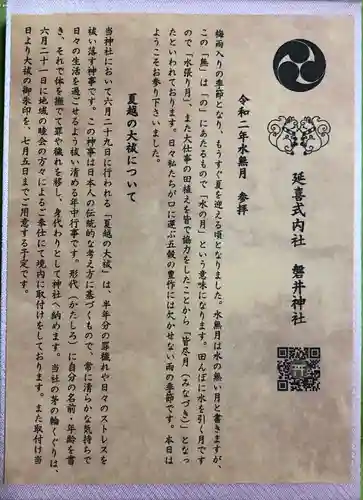 延喜式内社　磐井神社
令和二年水無月　参拝
梅雨入りの季節となり、もうすぐ夏を迎える頃となりました。水無月は水の無い月と書きますが、
この「無」は「の」にあたるもので「水の月」という意味になります。田んぼに水を引く月です
ので「水張り月」、また大仕事の田植えを皆で協力をしたことから「皆尽月（みなづき）」となっ
たといわれております。日々私たちが口に運ぶ五穀の豊作には欠かせない雨の季節です。本日は
ようこそお参り下さいました。
夏越の大祓について
当神社において六月二十九日に行われる「夏越の大祓」は、半年分の罪穢れや日々のストレスを
祓い落す神事です。この神事は日本人の伝統的な考え方に基づくもので、常に清らかな気持ちで
日々の生活を過ごせるよう祓い清める年中行事です。形代（かたしろ）に自分の名前・年齢を書
き、それで体を撫でて罪や穢れを移し、身代わりとして神社へ納めます。当社の茅の輪くぐりは、
六月二十一日に地域の睦会の方々によるご奉仕にて境内に取付けをしております。また取付け当
日より大祓の御朱印を、七月五日までご用意する予定です。